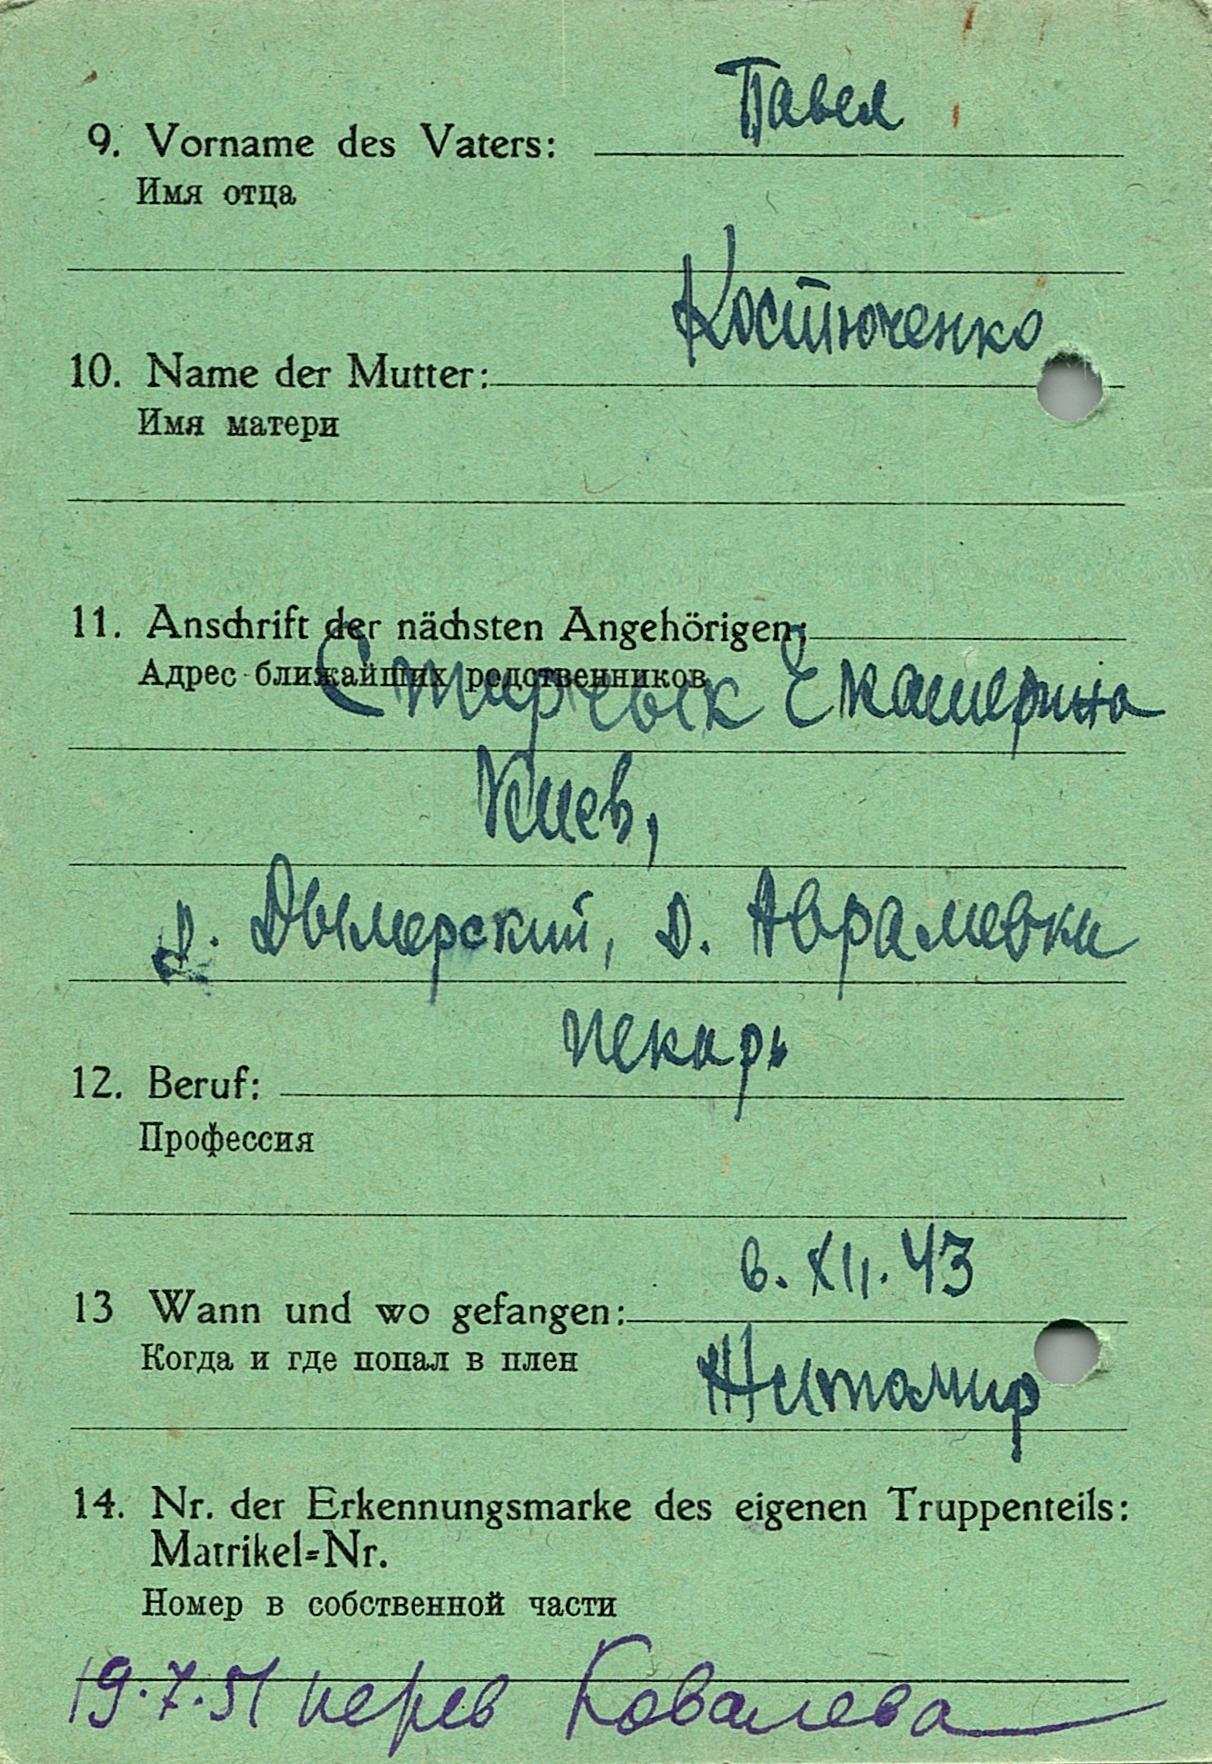 Павел
9. Vorname des Vaters:
Имя отца
Костюченко
10. Name der Mutter:
Имя матери
11. Anschrift der nächsten Angehörigen:
Адрес ближайших родственников
Екатерина
Киев,
р. Дымерский, д. Аврамевки
пекарь
12. Beruf:
Профессия
6. XII. 43
13 Wann und wo gefangen:
Когда и где попал в плен
Житомир
14. Nr. der Erkennungsmarke des eigenen Truppenteils:
Matrikel=Nr.
Номер в собственной части
19.7.51 перев Ковалева